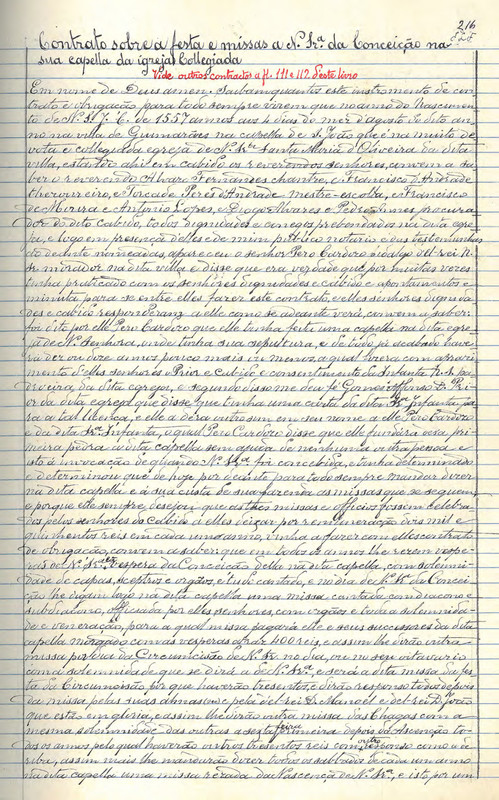 216
Contrato sobre a festa e missas a N. Srª. da Conceição na
sua capella da igreja Collegiada
Vide outros contractos a fl. 111 e 112 deste livro
Em nome de Deus amen. Saibam quantos este instromento de con-
trato e obrigação para todo sempre virem que no anno do Nascimento
de N. S. J. C. de 1557 annos aos 4 dias do mez d'agosto do dito an-
no na villa de Guimarães na capella de S. João que é na muito de-
vota e collegiada egreja de N. Srª Santa Maria d'Oliveira da dita
villa, estando ahi em cabido os reverendos senhores, convem a sa-
ber o reverendo Alvaro Fernandes chantre, e Francisco d'Andrade
thesoureiro, e Torcade Peres d'Andrade mestre-escolla, e Francisco
de Moreira e Antonio Lopes, e Diogo Alvares e Pedro Annes procura-
dor do dito Cabido, todos dignidades e conegos prebendados na dita egre-
ja, e logo em presença delles e de mim publico notario e das testemunhas
ao deante nomeadas, apareceu o senhor Pero Cardozo fidalgo del-rei N.
Sr. morador na dita villa e disse que era verdade que por muitas vezes
tinha praticado com os senhores dignidades e cabido e apontamentos e
minuta para se entre elles fazer este contrato, e elles senhores dignida-
des e cabido responderam a elle como se adeante verá, convem a saber:
foi dito por elle Pero Cardozo que elle tinha feita uma capella na dita egre-
ja de N. Senhora, onde tinha sua sepultura, e de todo já acabada have-
ria dez ou doze annos pouco mais ou menos, a qual fizera com aprazi-
mento d'elles senhores e Prior e Cabido e consentimento da Infanta N. S. pa-
droeira da dita egreja, e segundo disso me deu fé Gomes Affonso D. Pri-
or da dita egreja que disse que tinha uma carta da dita Srª Infanta, pa-
ra a tal licença, e elle a déra outro sim em seu nome a elle Pero Cardozo
e da dita Srª Infanta, o qual Pero Cardozo disse que elle fundára desa pri-
meira pedra a dita capella sem ajuda de nenhuma outra pessoa e
isto á invocação de quando N. Srª foi concebida, e tinha determinado
e determinou que de hoje por deante para todo sempre mandar dizer
na dita capella e á sua custa de sua fazenda as missas que se seguem,
e porque elle sempre desejou que as tres missas e officios fossem celebra-
dos pelos senhores do Cabido a elles deixar por remuneração dois mil e
quinhentos reis em cada um anno, vinha a fazer com elles contrato
de obrigação, convem a saber: que em todos os annos lhe serem vespe-
ras de N. Srª vespera da Conceição della na dita capella, com solemni-
dade de capas, sceptros e orgãos, e tudo cantado, e no dia de N. Srª da Concei-
ção lhe digam logo na dita capella uma missa cantada com diacono e
subdiacono, officiada por elles senhores, com orgãos e toda a solemnida-
de e veneração, para a qual missa pagará elle e seus successores da dita
capella e morgado com as vesperas atraz 400 reis, e assim lhe dirão outra
missa por dia da Circumcisão de N. Sr. no dia, ou no seu oitavario
com a solemnidade que se dirá a de N. Srª, e será a dita missa da fes-
ta da Circumcisão por que haverão tresentos, e dirão responso todo depois
da missa pelas suas almas e pela del-rei D. Manoel e del-rei D. João
que estão em gloria, e assim lhe dirão outra missa das Chagas com a
mesma solemnidade das outras a sexta feira primeira depois da Ascenção to-
dos os annos pelo qual haverão outros tresentos reis com outro responso como a de
riba, assim mais lhe mandarão dizer todos os sabbados de cada um anno
na dita capella uma missa rezada da Nascença de N. Srª, e isto por um